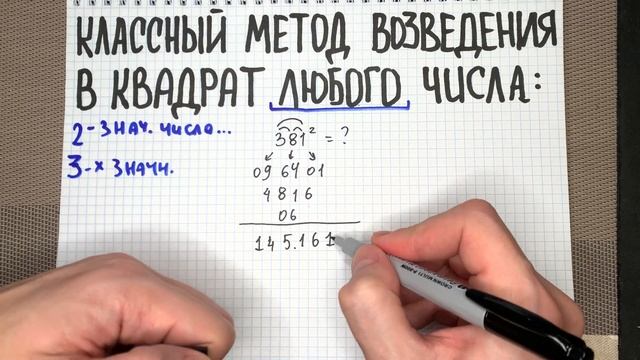 КЛАССНЫЙ МЕТОД ВОЗВЕДЕНИЯ
В КВАДРАТ ЛЮБОГО ЧИСЛА:
2-ЗНАЧ. ЧИСЛА...
3-Х ЗНАЧН.
381² = ?
09 64 01
4816
06
145.161